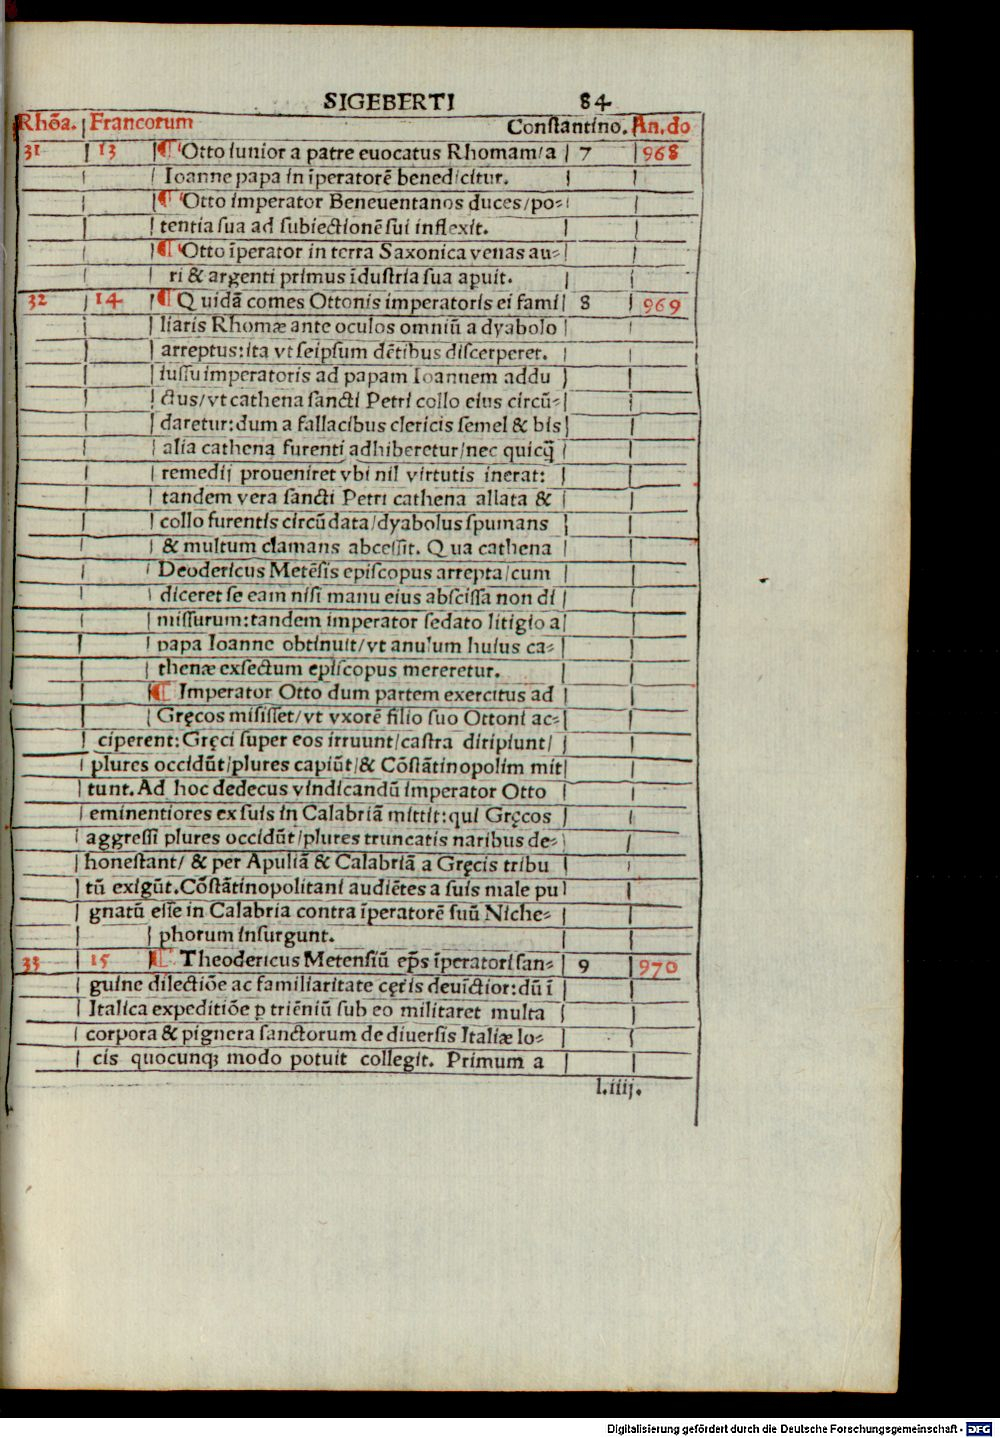 SIGEBERTI 84
Rhõa. Francorum Constantino. An.do
31 13 ¶ Otto iunior a patre euocatus Rhomam/a 7 968
Ioanne papa in ĩperatorẽ benedicitur.
¶ Otto imperator Beneuentanos duces/po⸗
tentia sua ad subiectionẽ sui inflexit.
¶ Otto ĩperator in terra Saxonica venas au⸗
ri & argenti primus ĩdustria sua apuit.
32 14 ¶ Quidã comes Ottonis imperatoris ei fami 8 969
liaris Rhomæ ante oculos omniũ a dyabolo
arreptus:ita vt seipsum dẽtibus discerperet.
iussu imperatoris ad papam Ioannem addu
ctus/vt cathena sancti Petri collo eius circũ⸗
daretur:dum a fallacibus clericis semel & bis
alia cathena furenti adhiberetur/nec quicq̃
remedij proueniret vbi nil virtutis inerat:
tandem vera sancti Petri cathena allata &
collo furentis circũdata/dyabolus spumans
& multum clamans abcessit. Qua cathena
Deodericus Metẽsis episcopus arrepta/cum
diceret se eam nisi manu eius abscissa non di
missurum:tandem imperator sedato litigio a
papa Ioanne obtinuit/vt anulum huius ca⸗
thenæ exsectum episcopus mereretur.
¶ Imperator Otto dum partem exercitus ad
Gręcos misisset/vt vxorẽ filio suo Ottoni ac⸗
ciperent:Gręci super eos irruunt/castra diripiunt/
plures occidũt/plures capiũt/& Cõstãtinopolim mit
tunt. Ad hoc dedecus vindicandũ imperator Otto
eminentiores ex suis in Calabriã mittit:qui Gręcos
aggressi plures occidũt/plures truncatis naribus de⸗
honestant/ & per Apuliã & Calabriã a Gręcis tribu
tũ exigũt. Cõstãtinopolitani audiẽtes a suis male pu
gnatũ esse in Calabria contra ĩperatorẽ suũ Niche⸗
phorum insurgunt.
33 15 ¶ Theodericus Metensiũ ep̃s ĩperatori san⸗ 9 970
guine dilectiõe ac familiaritate cęt̃is deuĩctior:dũ ĩ
Italica expeditiõe p triẽniũ sub eo militaret multa
corpora & pignera sanctorum de diuersis Italiæ lo⸗
cis quocunqꝫ modo potuit collegit. Primum a
l.iiij.
Digitalisierung gefördert durch die Deutsche Forschungsgemeinschaft - DFG